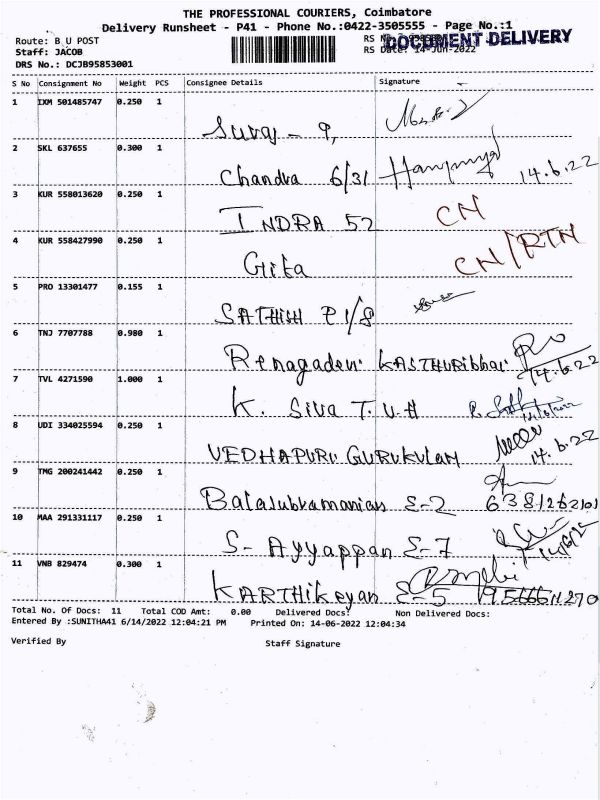 THE PROFESSIONAL COURIERS, Coimbatore
Delivery Runsheet - P41 - Phone No.:0422-3505555 - Page No.:1
Route: B U POST
RS No.:
DOCUMENT DELIVERY
Staff: JACOB
RS Date: 14-Jun-2022
DRS No.: DCJB95853001
S No Consignment No Weight PCS Consignee Details Signature
1 IXM 501485747 0.250 1
Suraj - 9,
2 SKL 637655 0.300 1
Chandra 6/31 14.6.22
3 KUR 558013620 0.250 1
INDRA 52 CN
4 KUR 558427990 0.250 1
Gita CN/RTN
5 PRO 13301477 0.155 1
SATHISH P1/8
6 TNJ 7707788 0.980 1
Renagadevi KASTHURibhai 14.6.22
7 TVL 4271590 1.000 1
K. Siva T.U.H
8 UDI 334025594 0.250 1
VEDHAPURI GURUKULAM 14.6.22
9 TMG 200241442 0.250 1
Balasubramanian E-2
10 MAA 291331117 0.250 1
S- Ayyappan E-7
11 VNB 829474 0.300 1
KARTHikeyan E-5
Total No. Of Docs: 11 Total COD Amt: 0.00 Delivered Docs: Non Delivered Docs:
Entered By :SUNITHA41 6/14/2022 12:04:21 PM Printed On: 14-06-2022 12:04:34
Verified By Staff Signature